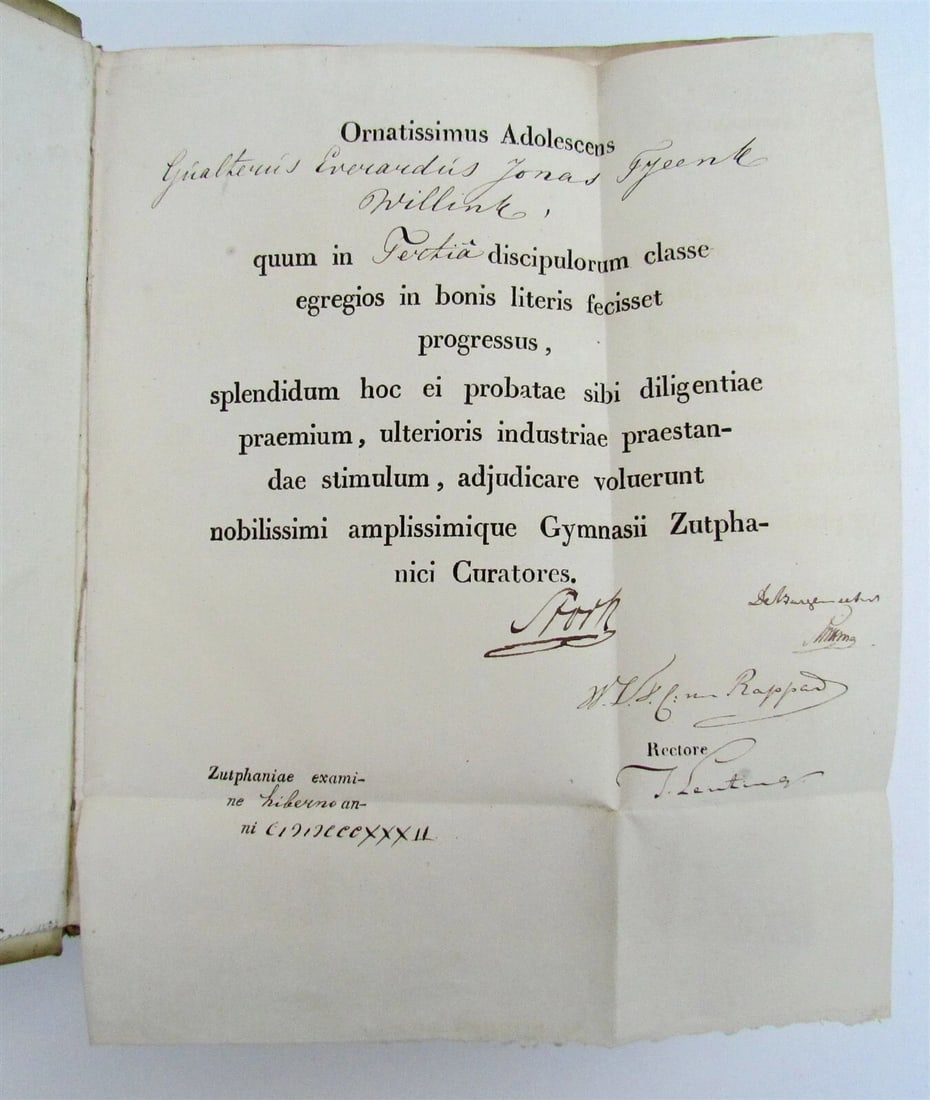 Ornatissimus Adolescens
Gualterus Everardus Jonas Tyeenk
Willink,
quum in Tertiâ discipulorum classe
egregios in bonis literis fecisset
progressus,
splendidum hoc ei probatae sibi diligentiae
praemium, ulterioris industriae praestan-
dae stimulum, adjudicare voluerunt
nobilissimi amplissimique Gymnasii Zutpha-
nici Curatores.
Stork
Rappard
Rectore
Zutphaniae exami-
ne hiberno an-
ni CIƆIƆCCCXXXII